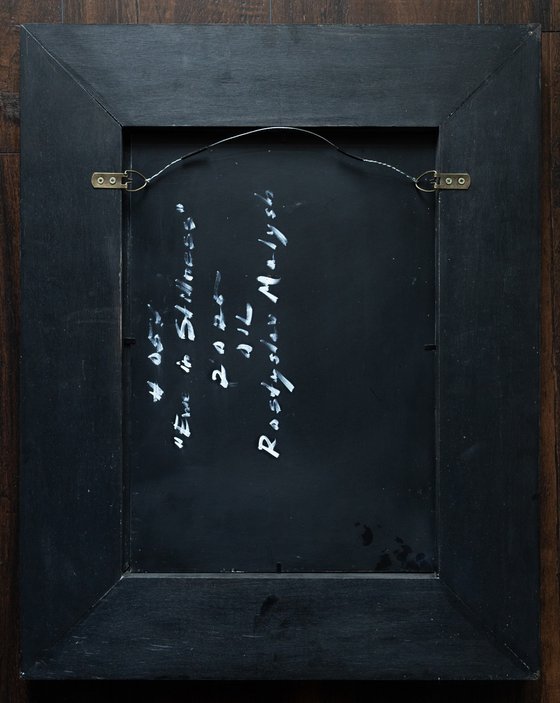 # 055
"Ewe in Stillness"
2025
OIL
Rostyslav Malysh